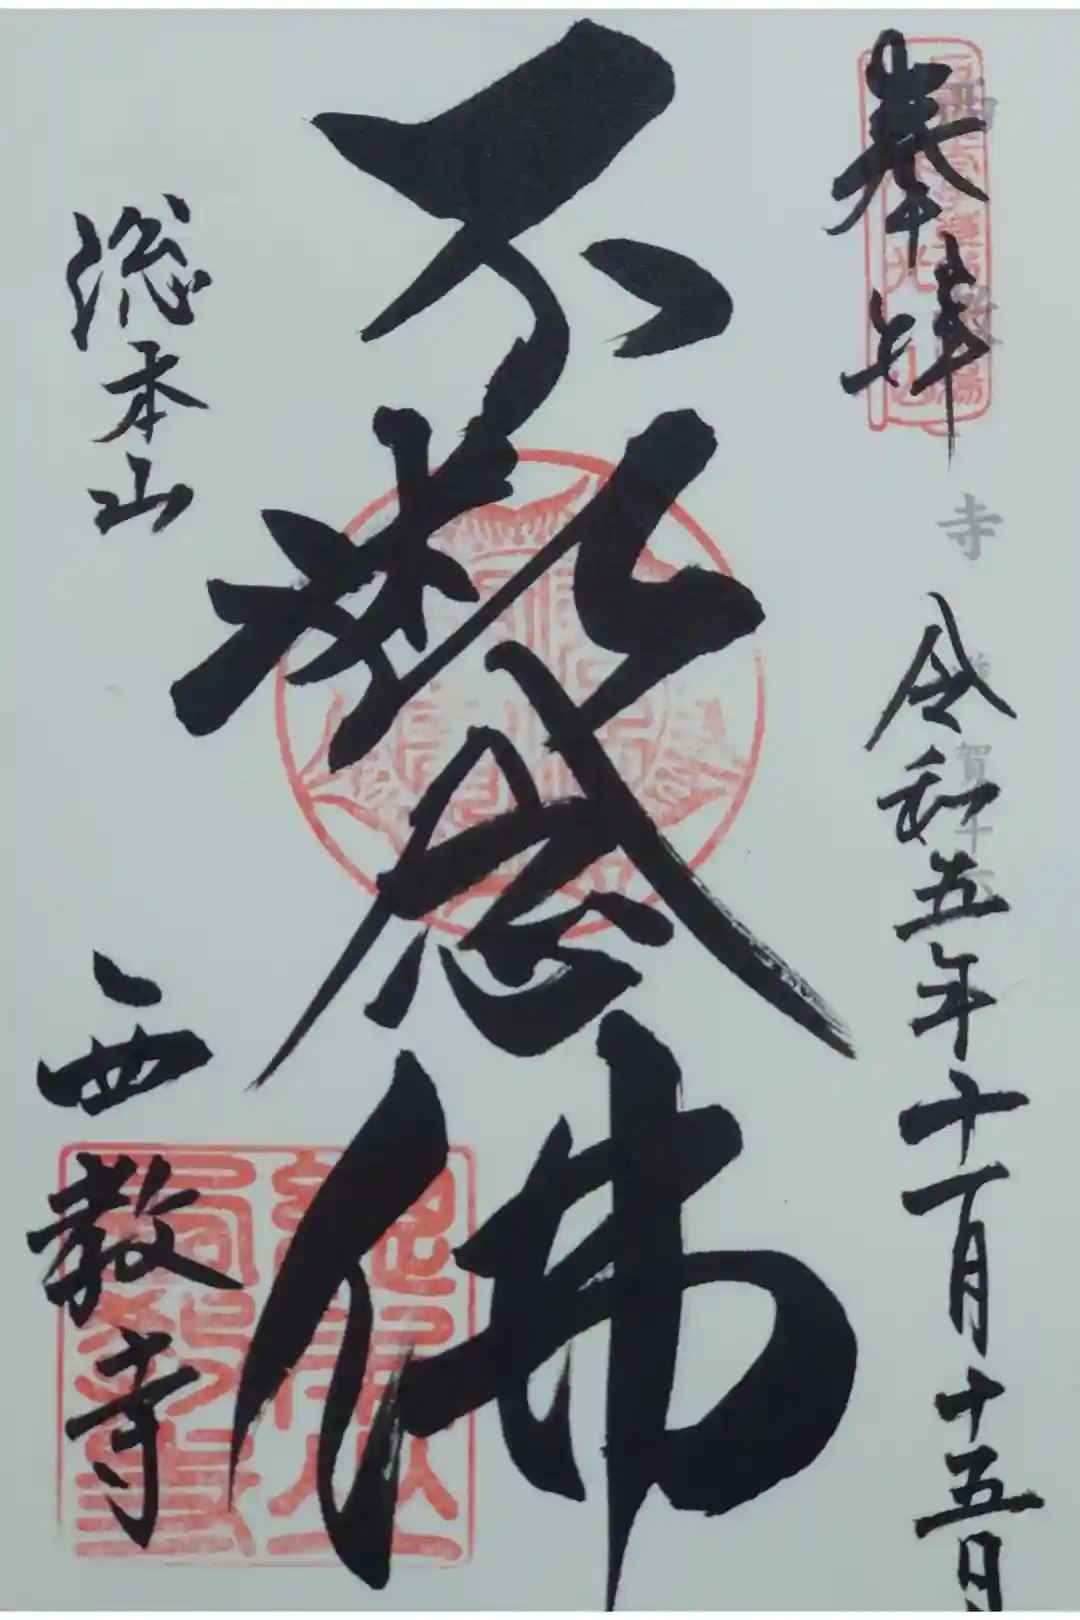 奉拝
令和五年十一月十五日
不断念佛
総本山
西教寺